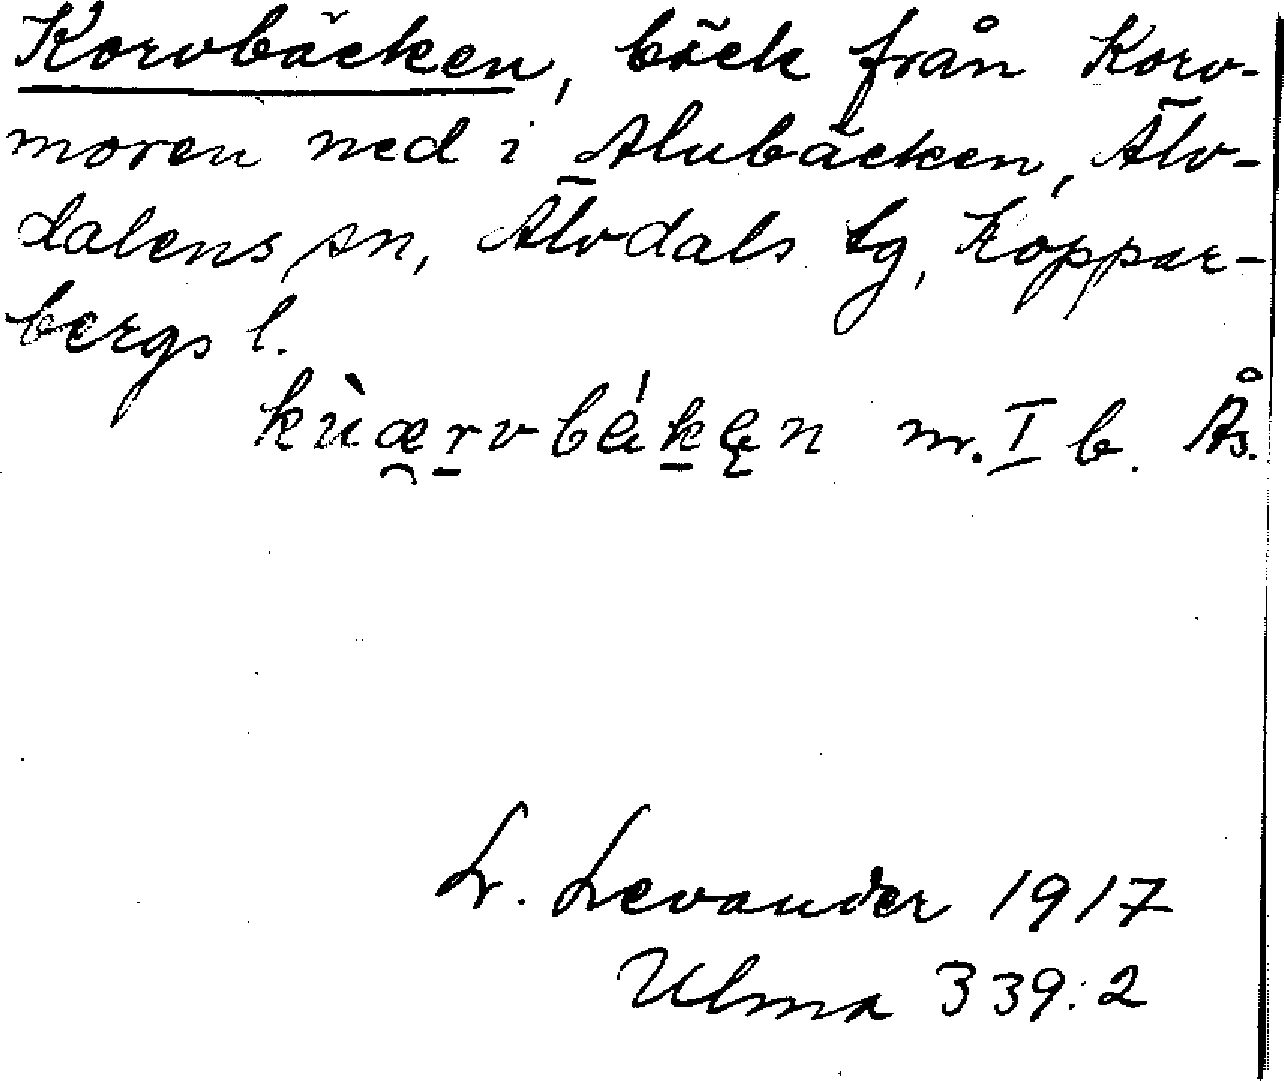 Korvbäcken, bäck från Korv-
moren ned i Alubäcken, Älv-
dalens sn, Älvdals tg, Koppar-
bergs l.
m. I b. Ås.
L. Levander 1917
Ulma 339:2